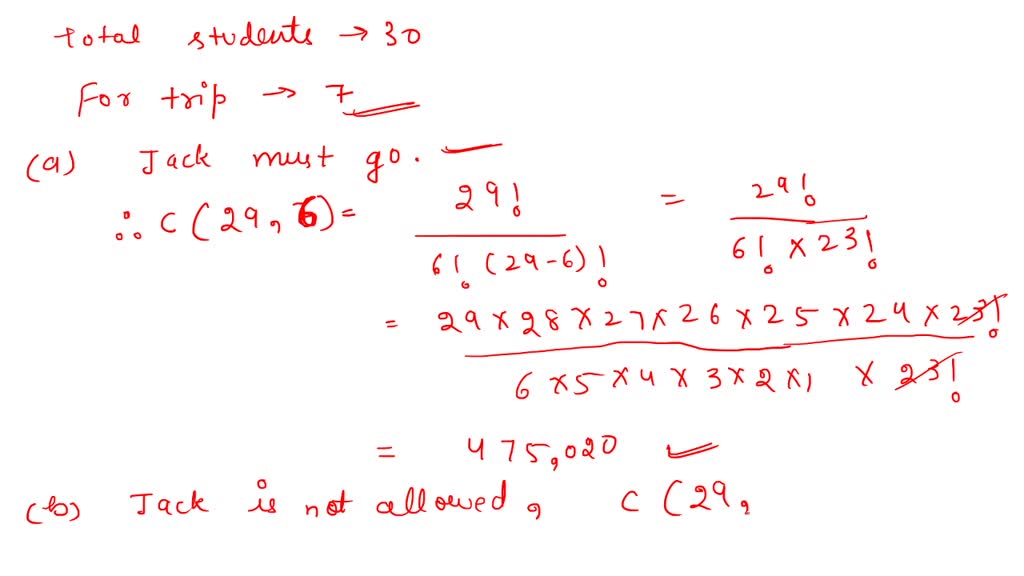 Total students → 30
For trip → 7
(a) Jack must go.
∴ C (29, 6) = 29! / 6! (29-6)! = 29! / 6! × 23!
= 29 × 28 × 27 × 26 × 25 × 24 × 23! / 6 × 5 × 4 × 3 × 2 × 1 × 23!
= 475,020 ✓
(b) Jack is not allowed, C (29,